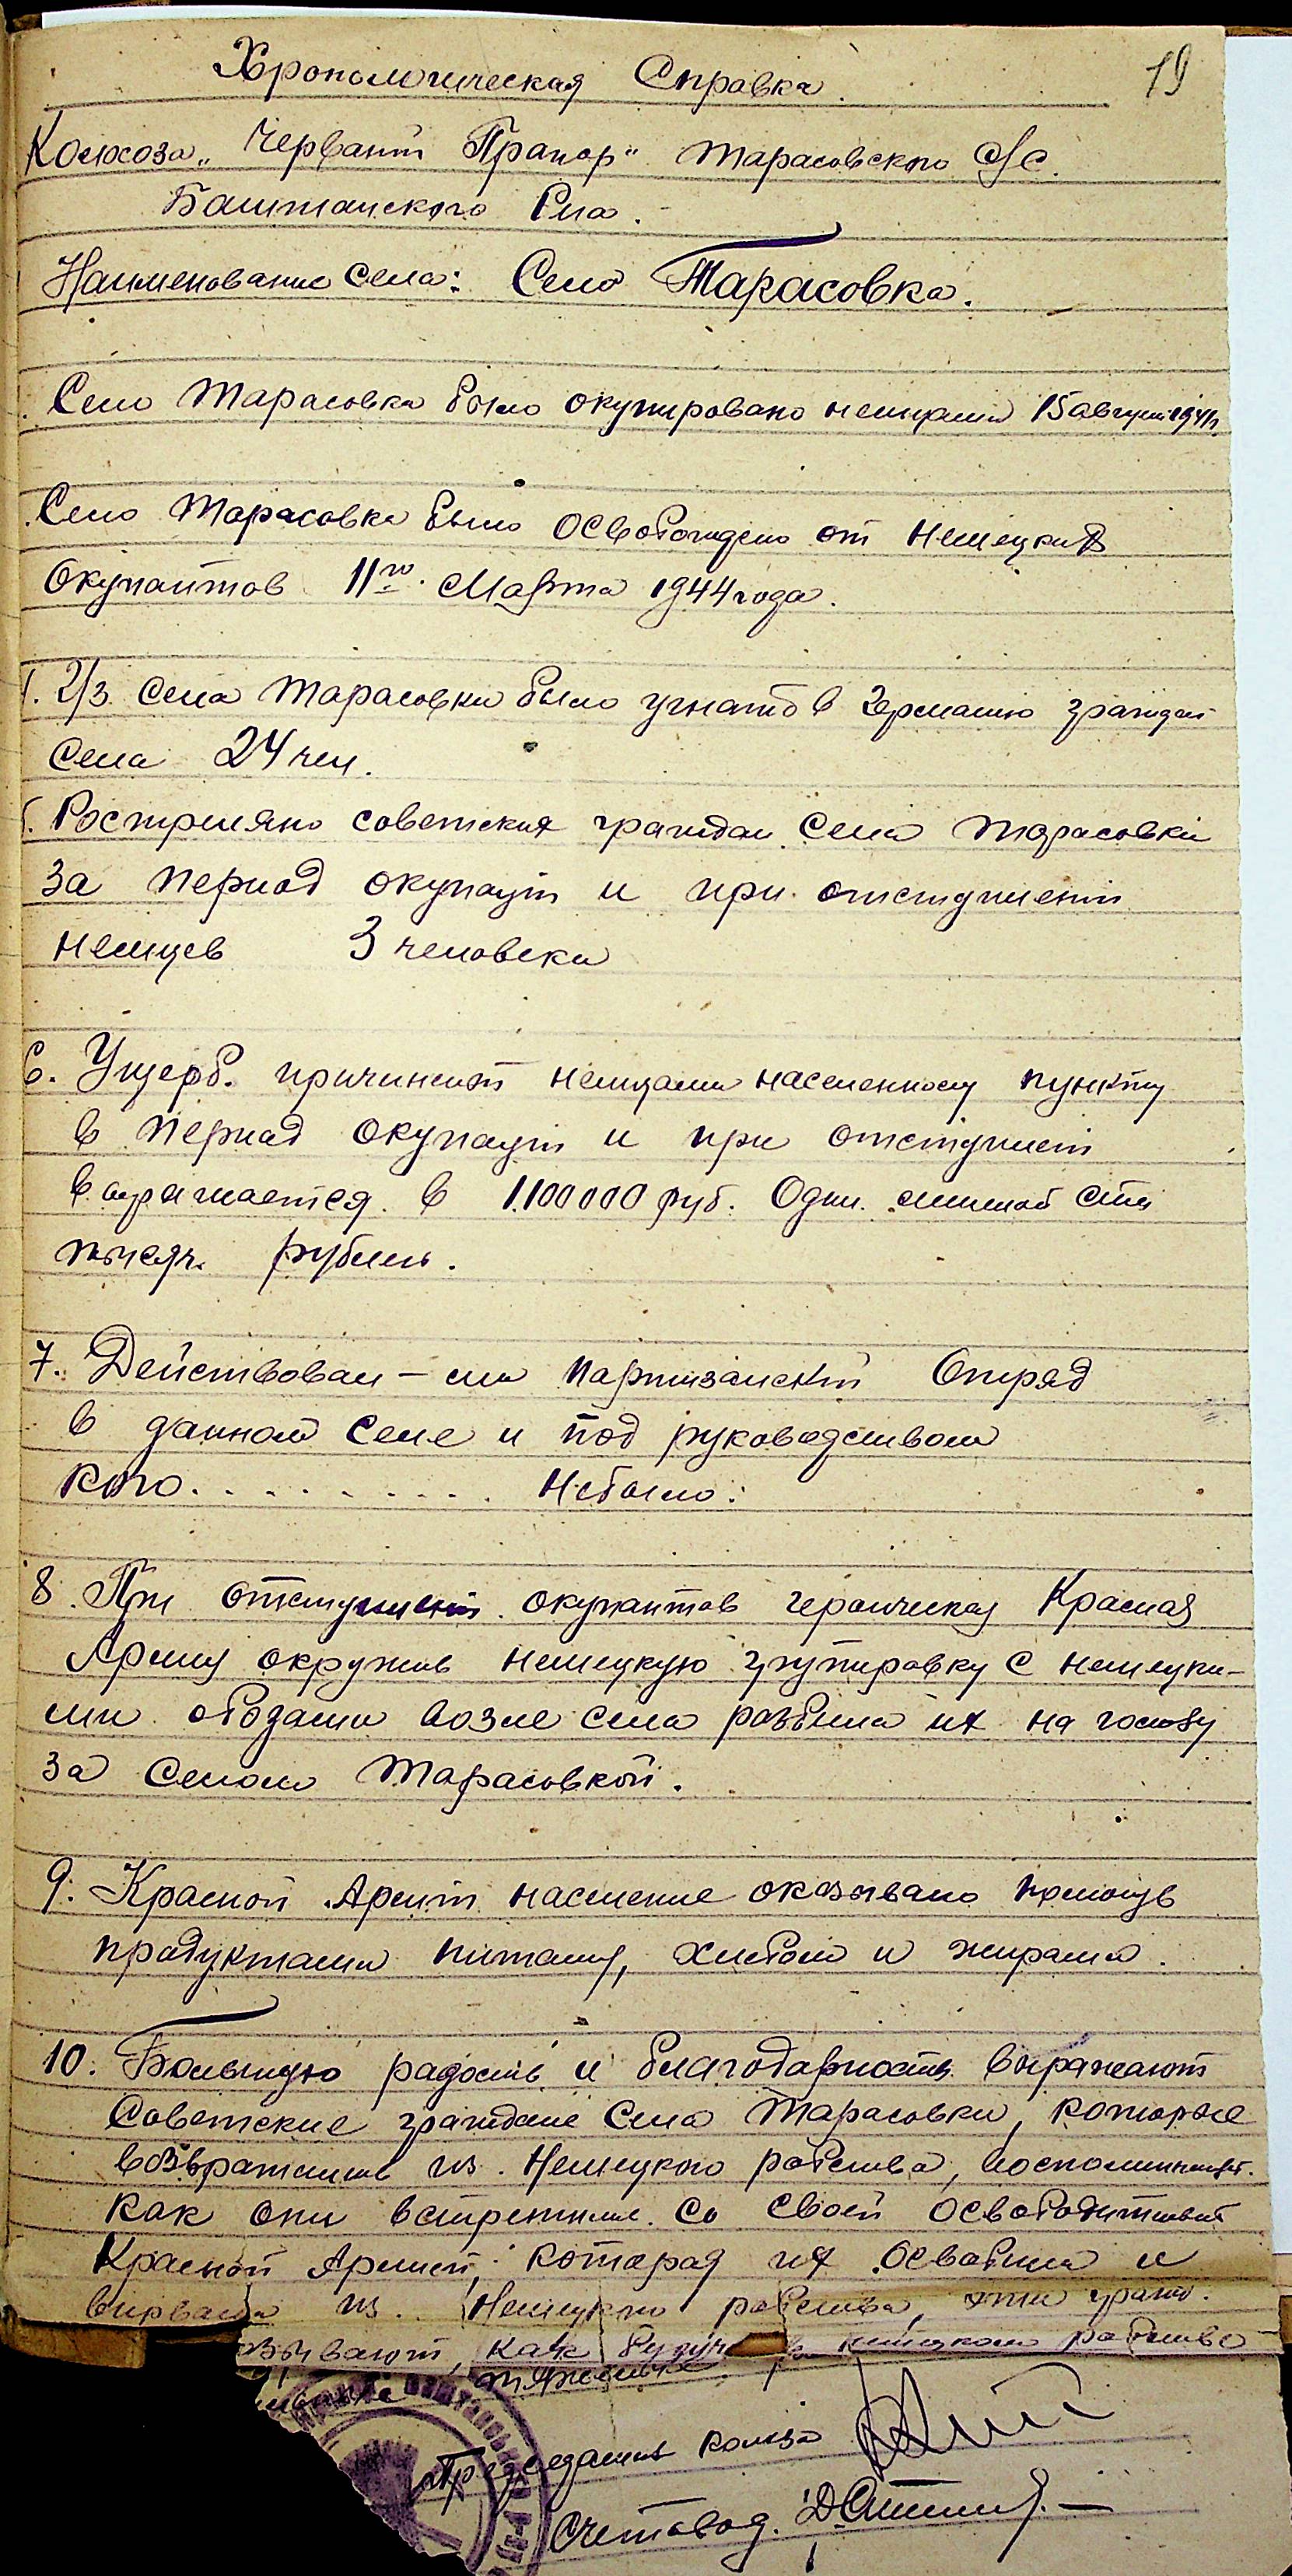 19
Хронологическая Справка.
Колхоза „Червоний Прапор" Тарасовского С/С.
Баштанского Р-на.
Наименование села: Село Тарасовка.
Село Тарасовка было окупировано немцами 15 августа 1941 г.
Село Тарасовка было освобождено от Немецких
Окупантов 11го Марта 1944 года.
2/3 села Тарасовки было угнато в Германию граждан
села 24 чел.
Ростреляно советских граждан села Тарасовки
за период окупации и при отступлении
немцев 3 человека
6. Ущерб причинений немцами населенному пункту
в период окупации и при отступлении
выражается в 1.100000 руб. Один милион сто
тысяч рублей.
7. Действовал-ли партизанский Отряд
в данном селе и под руководством
кого.......... Небыло.
8. При отступлении окупантов героическая Красная
Армия окружив немецкую групировку с немецки-
ми обозами возле села разбила их на голову
за Селом Тарасовкой.
9. Красной Армии население оказывало помощь
продуктами питания, хлебом и жирами.
10. Большую радость и благодарность выражают
Советские граждане Села Тарасовки, которые
возвратились из Немецкого рабства, воспоминают
как они встретились со своей освободительной
Красной Армией, которая их освободила и
вирвала из Немецкого рабства, эти гражд.
зывают, как будучи в немецком рабстве
тяжелые
Председатель колхоза
Счетовод.